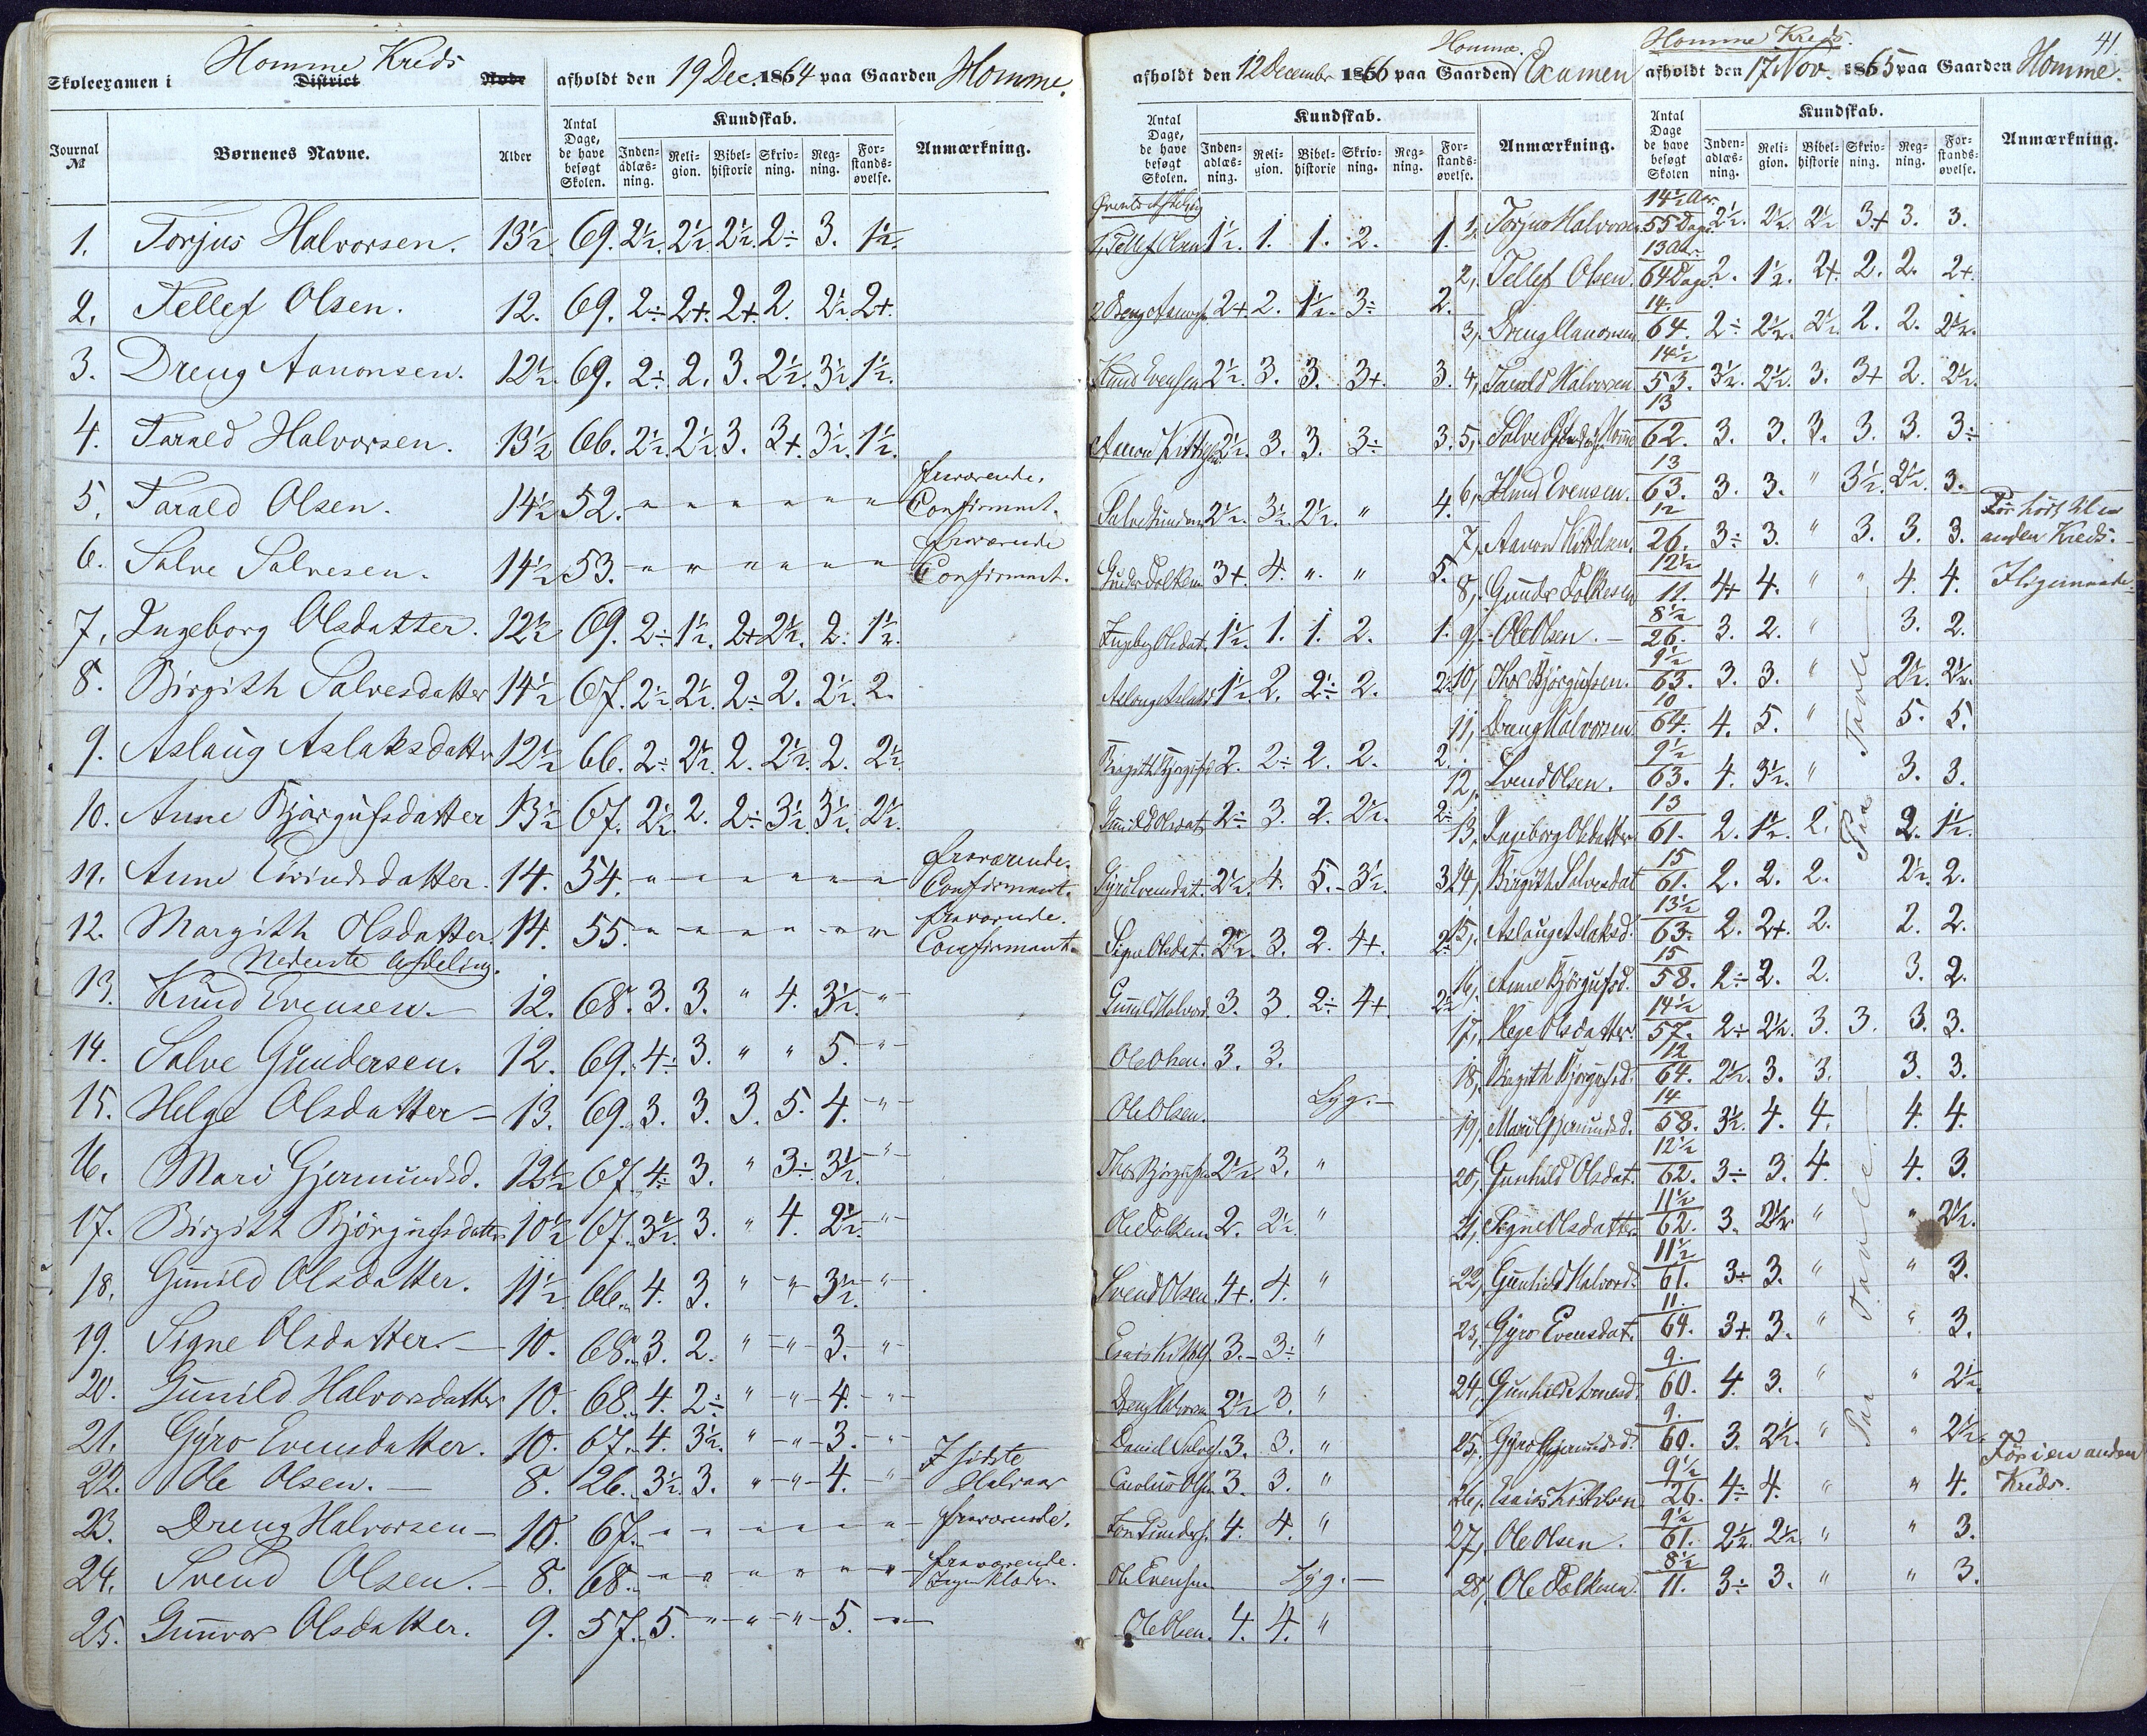 Skoleexamen i Homme Kreds District Røde afholdt den 19 Dec. 1864 paa Gaarden Homme.
Journal № Børnenes Navne. Alder Antal Dage, de have besøgt Skolen. Kundskab. Inden-adlæs-ning. Reli-gion. Bibel-historie Skriv-ning. Reg-ning. For-stands-øvelse. Anmærkning.
1. Torjus Halvorsen. 13½ 69. 2½. 2½. 2½. 2÷ 3. 1½.
2. Tellef Olsen. 12. 69. 2÷ 2+. 2+. 2. 2½. 2+.
3. Dreng Aanonsen. 12½. 69. 2÷. 2. 3. 2½. 3½. 1½.
4. Tarald Halvorsen. 13½ 66. 2½. 2½. 3. 3+. 3½. 1½.
5. Tarald Olsen. 14½ 52. " " " " " " fraværende. Confirmant.
6. Salve Salvesen. 14½ 53. " " " " " " fraværende Confirmant.
7. Ingeborg Olsdatter. 12½ 69. 2÷ 1½. 2+ 2½. 2. 1½.
8. Birgith Salvesdatter 14½ 67. 2½. 2½. 2÷ 2. 2½. 2.
9. Aslaug Aslaksdatter 12½ 66. 2÷ 2½. 2. 2½. 2. 2½.
10. Anne Bjørgufsdatter 13½ 67. 2½. 2. 2÷ 3½. 3½. 2½.
11. Anne Eivindsdatter. 14. 54. " " " " " " fraværende. Confirmant.
12. Margith Olsdatter. 14. 55. " " " " " " fraværende. Confirmant.
Nederste Afdeling.
13. Knud Evensen. 12. 68. 3. 3. " 4. 3½. "
14. Salve Gundersen. 12. 69. 4÷ 3. " " 5. "
15. Helge Olsdatter 13. 69. 3. 3. 3. 5. 4. "
16. Mari Gjermundsd. 12½ 67. 4÷ 3. " 3÷ 3½. "
17. Birgith Bjørgufsdatter 10½ 67. 3½. 3. " 4. 2½. "
18. Gunild Olsdatter. 11½. 66. 4. 3. " " 3½. "
19. Signe Olsdatter. 10. 68. 3. 2. " " 3. "
20. Gunild Halvorsdatter 10. 68. 4. 2÷ " " 4. "
21. Gyro Evensdatter. 10. 67. 4. 3½. " " 3. "
22. Ole Olsen. 8. 26. 3½. 3. " " 4. " I sidste Halvaar
23. Dreng Halvorsen 10. 67. " " " " " " fraværende.
24. Svend Olsen. 8. 68. " " " " " " fraværende. Ingen Klæder.
25. Gunvor Olsdatter. 9. 57. 5. " " " 5. "
afholdt den 12 December 1866 paa Gaarden Homme. Examen
Antal Dage, de have besøgt Skolen. Kundskab. Inden-adlæs-ning. Reli-gion. Bibel-historie Skriv-ning. Reg-ning. For-stands-øvelse. Anmærkning.
Øverste Afdeling
1, Tellef Olsen 1½. 1. 1. 2. 1.
2 Dreng Aanonsen 2+ 2. 1½. 3÷ 2.
Knud Evensen 2½. 3. 3. 3+. 3.
Aanon Kittelsen 2½. 3. 3. 3÷ 3.
Salve Gunders. 2½. 3½. 2½. " 4.
Gunder Folkesen 3+. 4. " " 5.
Ingeborg Olsdat. 1½. 1. 1. 2. 1.
Aslaug Aslaksd. 1½. 2. 2÷ 2. 2½
Birgith Bjørgufsd. 2. 2÷ 2. 2. 2.
Gunild Olsdat. 2÷ 3. 2. 2½. 2÷
Gyro Evensdat. 2½. 4. 5. 3½. 3.
Signe Olsdat. 2½. 3. 2. 4+.
Gunild Halvord. 3. 3. 2÷ 4+ 2½
Ole Olsen. 3. 3.
Ole Olsen. Syg.
Thor Bjørgufsen 2½. 3. "
Ole Folkesen 2. 2½. "
Svend Olsen. 4+. 4. "
Esaias Kittels. 3. 3÷ "
Dreng Halvorsen 2½ 3. "
Daniel Salves. 3. 3. "
Carolius Olsen 3. 3. "
Jon Gunders. 4. 4. "
Ole Evensen Syg.
Ole Olsen. 4. 4. "
Homme Kreds. 41.
afholdt den 17 Nov. 1865 paa Gaarden Homme.
Antal Dage de have besøgt Skolen Kundskab. Inden-adlæs-ning. Reli-gion. Bibel-historie Skriv-ning. Reg-ning. For-stands-øvelse. Anmærkning.
1, Torjus Halvorsen 14½ Aar 55 Dage 2½. 2½. 2½ 3+ 3. 3.
2, Tellef Olsen. 13 Aar. 64 Dage. 2. 1½. 2+. 2. 2. 2+.
3, Dreng Aanonsen 14. 64. 2÷ 2½. 2½. 2. 2. 2½.
4, Tarald Halvorsen 14½ 53. 3½. 2½. 3. 3+ 2. 2½.
5, Salve Gundersen Homme 13 62. 3. 3. 3. 3. 3. 3÷
6, Knud Evensen. 13 63. 3. 3. " 3½. 2½. 3.
7, Aanon Kittelsen. 12 26. 3÷ 3. " 3. 3. 3. Før hørt til en anden Kreds.
8, Gunder Folkesen 12½ 11. 4+ 4. " " 4. 4. Iligemaade
9, Ole Olsen. 8½ 26. 3. 2. " 3. 2.
10, Thor Bjørgufsen. 9½ 63. 3. 3. " 2½. 2½.
11, Dreng Halvorsen 10 64. 4. 5. " 5. 5.
12, Svend Olsen. 9½ 63. 4. 3½. " 3. 3.
13, Ingeborg Olsdatter 13 61. 2. 1½. 2. 2. 1½.
14, Birgith Salvesdat 15 61. 2. 2. 2. 2½. 2.
15, Aslaug Aslaksd. 13½ 63. 2. 2+. 2. 2. 2.
16, Anne Bjørgufsd. 15 58. 2÷ 2. 2. 3. 2.
17, Helge Olsdatter. 14½ 57. 2÷ 2½. 3. 3. 3. 3.
18, Birgith Bjørgufsd. 12 64. 2½. 3. 3. 3. 3.
19, Mari Gjermundsd. 14 58. 3½. 4. 4. 4. 4.
20, Gunhild Olsdat. 12½ 62. 3÷ 3. 4. 4. 3.
21, Signe Olsdatter. 11½ 62. 3. 2½. " " 2½.
22, Gunhild Halvord. 11½ 61. 3÷ 3. " " 3.
23, Gyro Evensdat. 11. 64. 3+. 3. " " 3.
24, Gunhild 9. 60. 4. 3. " " 2½.
25. Gyro Gjermundsd. 9. 60. 3. 2½. " " 2½.
26, Esaias Kittelsen 9½ 26. 4÷ 4. " " 4. Før i en anden Kreds.
27, Ole Olsen. 9½ 61. 2½. 2½. " " 3.
28, Ole Folkesen. 8½ 11. 3÷ 3. " " 3.
Paa Tavle
Paa Tavle.